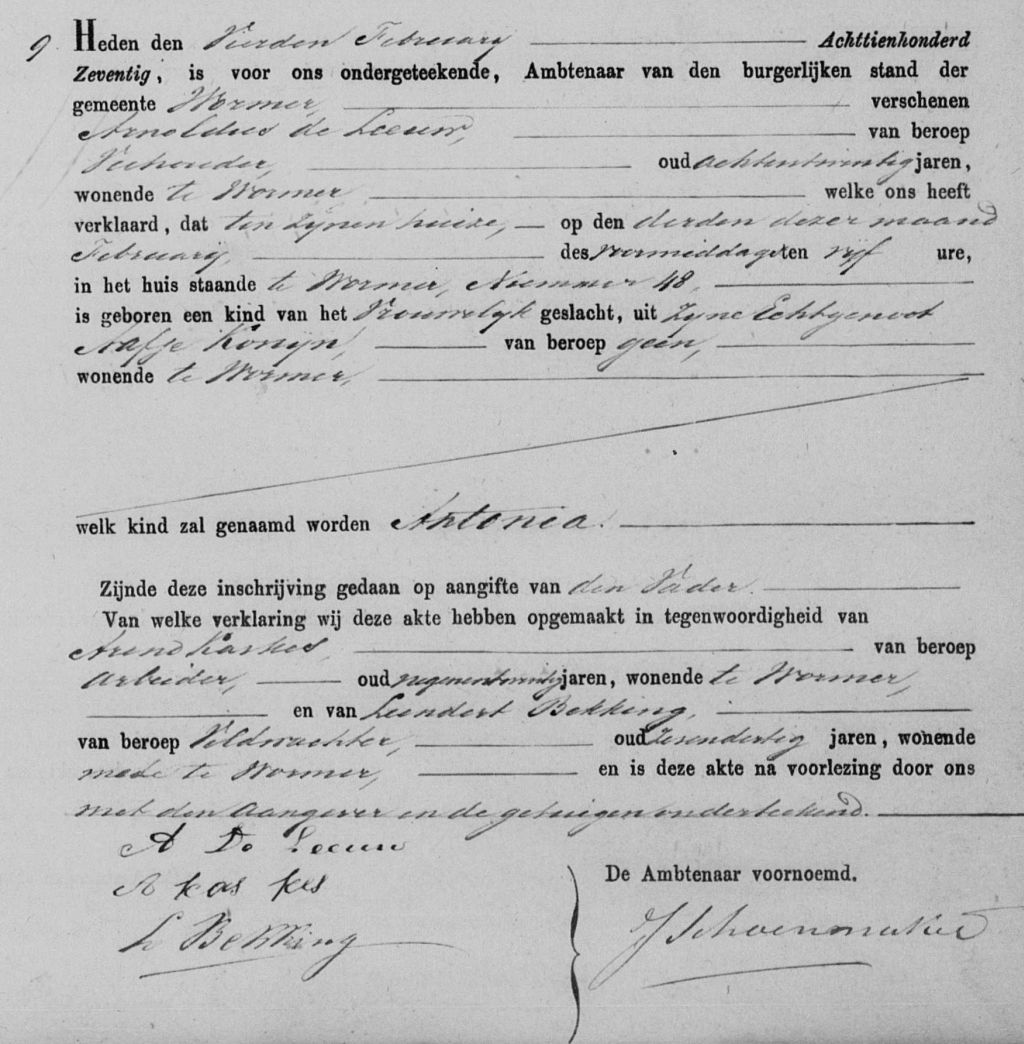 9. Heden den Vierden February Achttienhonderd
Zeventig, is voor ons ondergeteekende, Ambtenaar van den burgerlijken stand der
gemeente Wormer, verschenen
Arnoldus de Leeuw, van beroep
Veehouder, oud achtentwintig jaren,
wonende te Wormer welke ons heeft
verklaard, dat ten zijnen huize, op den derden dezer maand
February, des voormiddags ten vijf ure,
in het huis staande te Wormer, Nummer 48,
is geboren een kind van het Vrouwelijk geslacht, uit zijne Echtgenoot
Aafje Konijn, van beroep geen,
wonende te Wormer,
welk kind zal genaamd worden Antonia.
Zijnde deze inschrijving gedaan op aangifte van den Vader.
Van welke verklaring wij deze akte hebben opgemaakt in tegenwoordigheid van
Arend Kaskes, van beroep
Arbeider, oud negenentwintig jaren, wonende te Wormer,
en van Leendert Bekking,
van beroep Veldwachter, oud zesendertig jaren, wonende
mede te Wormer, en is deze akte na voorlezing door ons
met den Aangever en de getuigen onderteekend.
A De Leeuw
A kas kes
L Bekking
De Ambtenaar voornoemd.
J Schoenmaker